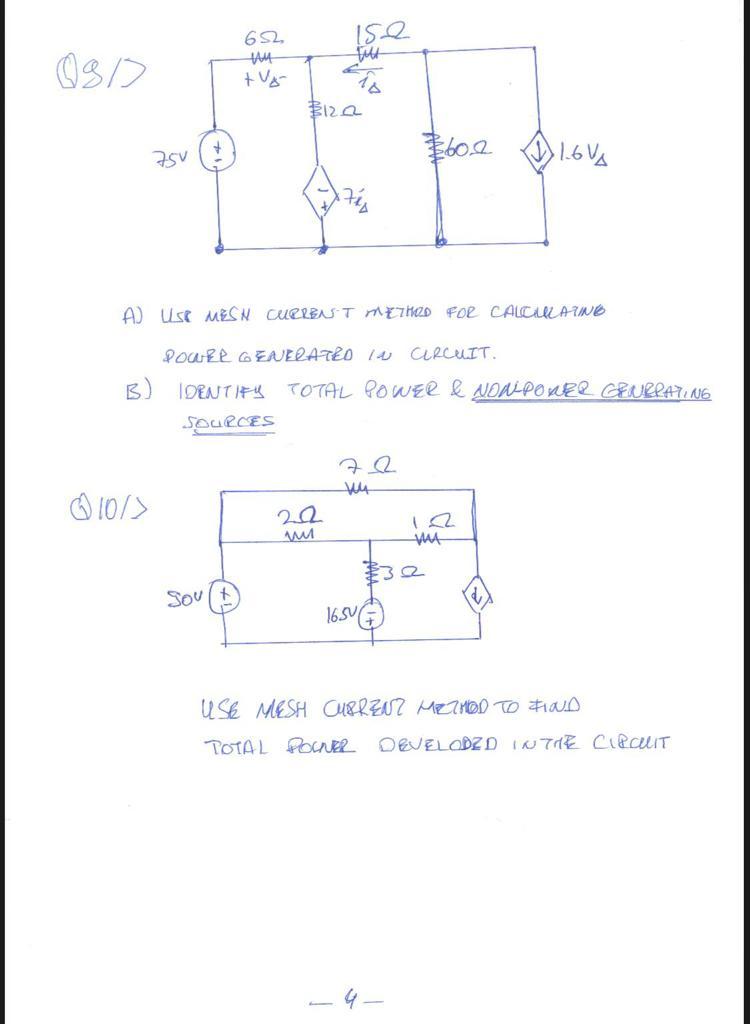 Q9/>
6Ω
15Ω
+ VΔ -
iΔ
12Ω
75V
+
-
-
+
7iΔ
60Ω
1.6 VΔ
A) USE MESH CURRENT METHOD FOR CALCULATING
POWER GENERATED IN CIRCUIT.
B) IDENTIFY TOTAL POWER & NON-POWER GENERATING
SOURCES
Q10/>
7Ω
2Ω
1Ω
3Ω
50V
+
-
165V
-
+
USE MESH CURRENT METHOD TO FIND
TOTAL POWER DEVELOPED IN THE CIRCUIT
— 4 —